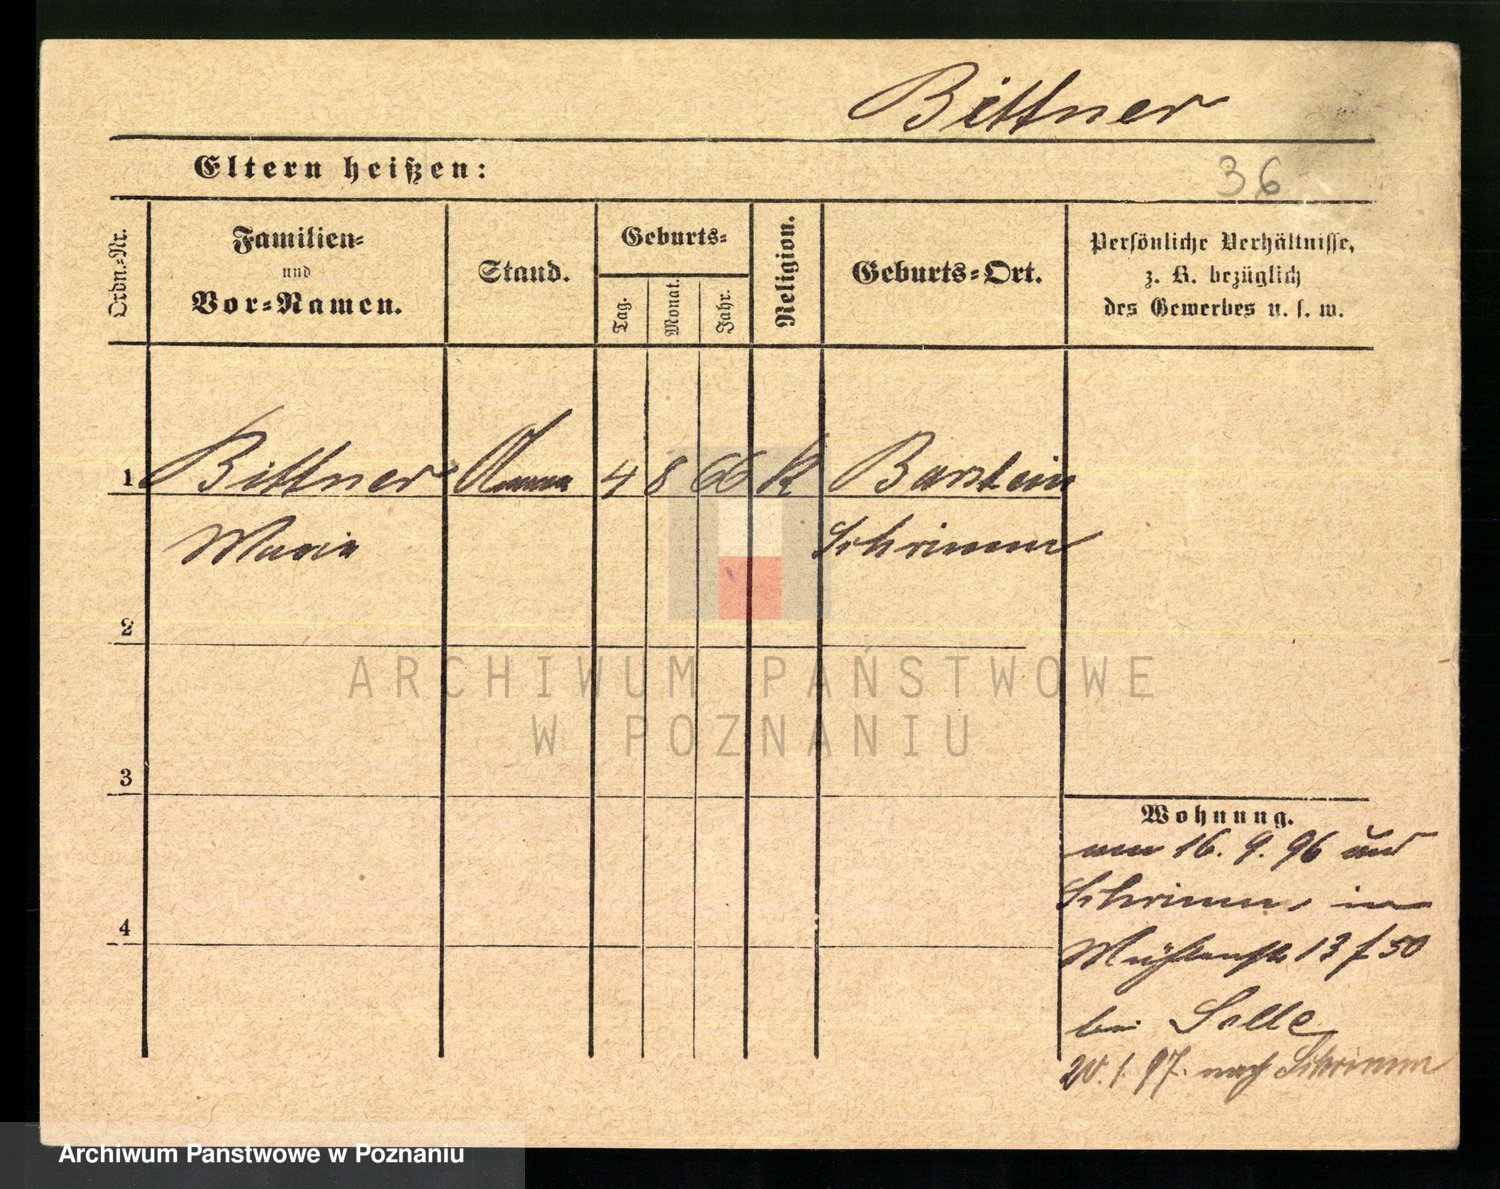 Bittner
Eltern heißen:
36
Ordn.-Nr.
Familien-
und
Vor-Namen.
Stand.
Geburts-
Tag.
Monat.
Jahr.
Religion.
Geburts-Ort.
Persönliche Verhältnisse,
z. B. bezüglich
des Gewerbes u. s. w.
1 Bittner Amme 4 8 66 K Barstein
Maria Schrimm
2
ARCHIWUM PAŃSTWOWE
W POZNANIU
3
4
Wohnung.
am 16. 9. 96 aus
Schrimm, in
Mühlenstr 13 f 50
bei Selle
20. 1. 97. nach Schrimm
Archiwum Państwowe w Poznaniu